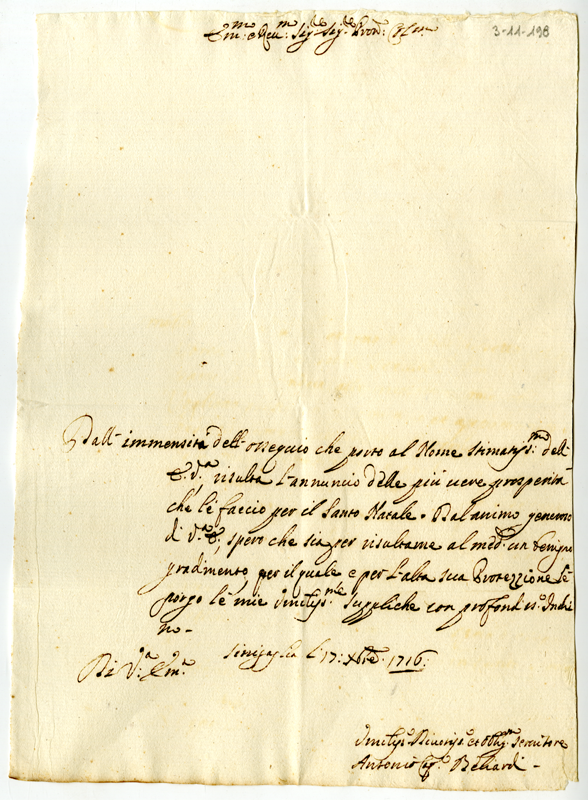 Em:mo e Reu:mo Sig:re Sig:re Pron: Col:mo
3-11-198
Dall' immensità dell' ossequio che porto al Nome stimatiss:mo dell'
E. V.a, risulta l'annuncio delle più vere prosperità
che le faccio per il Santo Natale. Dal animo generoso
di V.a E., spero che sia per risultarne al med:o un benigno
gradimento, per il quale e per l'alta sua Protezzione le
porgo le mie umiliss:me suppliche con profondiss:o Inchi
no.
Sinigaglia li 17: Xbre 1716:
Di V:a Em:a
Umiliss:o Divotiss:o et Obblig:mo Servitore
Antonio Bellardi